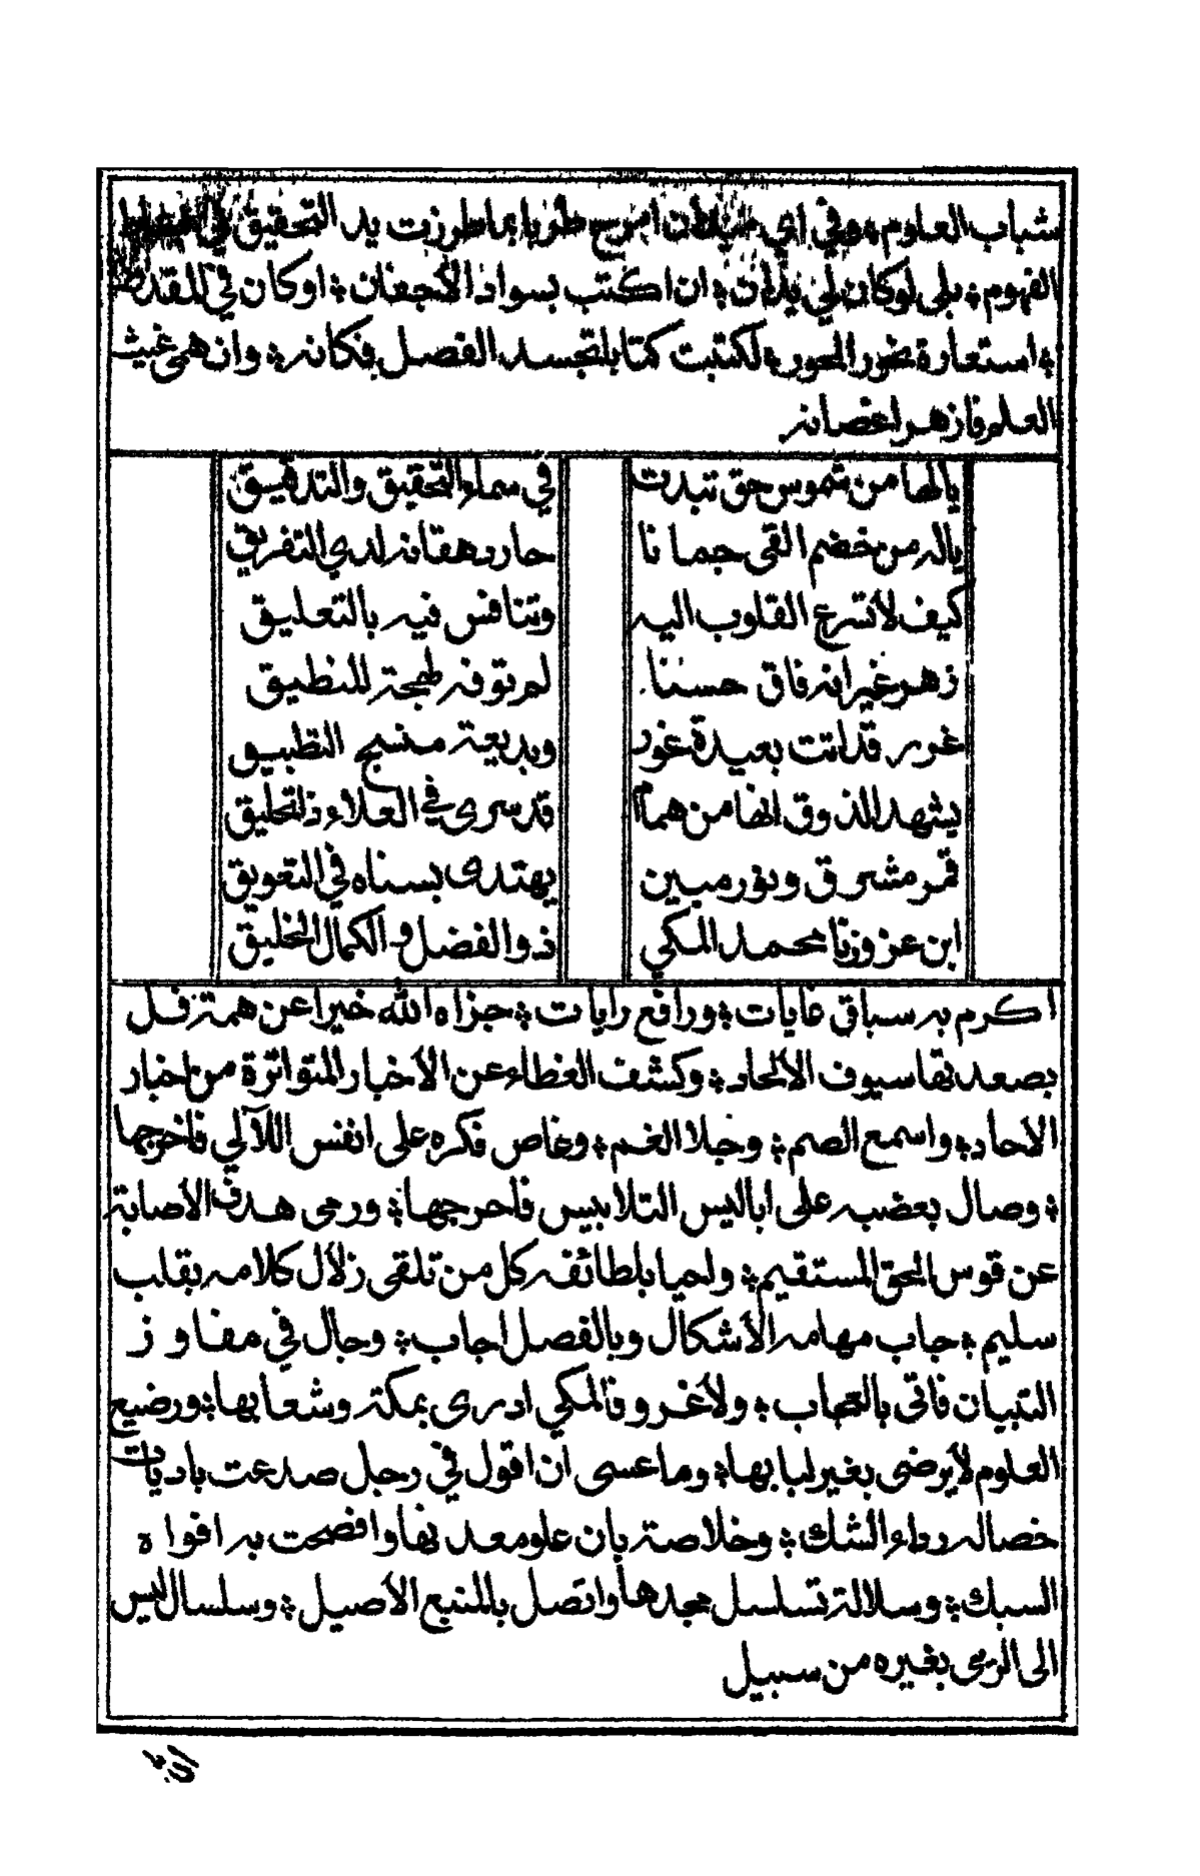 شباب العلوم ؛ وفي اي ميدان امرح طربا بما طرزت يد التحقيق في
الفهوم ؛ بلى لوكان لي يدان ؛ ان اكتب بسواد الأجفان ؛ اوكان في المقدور
؛ استعارة نحور الحور ؛ لكتبت كتابا تجسد الفصل فكانه ؛ وان همى غيث
العلم فازهر اغصانه
يالها من شموس حق تبدت في سماء التحقيق والتدقيق
ياله من خضم القى جمانا حار دهقانه لدى التفريق
كيف لأتسرع القلوب اليه وتنافس فيه بالتعليق
زهر غير انه فاق حسنا لم توفه بهجة للنطيق
غرر قد اتت بعيدة غور وبديعة منسج التطبيق
يشهد الذوق انها من همام قد سرى في العلاء ذا تحليق
قمر مشرق ونور مبين يهتدى بسناه في التعويق
ابن عزوزنا محمد المكي ذو الفضل والكمال الخليق
اكرم به سباق غايات ؛ ورافع رايات ؛ جزاه الله خيرا عن همة فل
بصعدتها سيوف الألحاد ؛ وكشف الغطاء عن الأخبار المتواترة من اخبار
الأحاد ؛ واسمع الصم ؛ وجلا الغم ؛ وغاص فكره على انفس اللآلي فاخرجها
؛ وصال بعضبه على اباليس التلابيس فأحرجها ؛ ورمى هدف الأصابة
عن قوس الحق المستقيم ؛ واحيا بلطائفه كل من تلقى زلأل كلامه بقلب
سليم ؛ جاب مهامه الأشكال وبالفصل اجاب ؛ وجال في مفاوز
التبيان فاتى بالعجاب ؛ ولأغرو فالمكي ادرى بمكة وشعابها ؛ ورضيع
العلوم لأيرضى بغير لبابها ؛ وما عسى ان اقول في رجل صدعت باديات
خصاله رداء الشك ؛ وخلاصة بان علو معدنها وافصحت به افواه
السبك ؛ وسلالة تسلسل مجدها واتصل بالمنبع الأصيل ؛ وسلسال ليس
الى الري بغيره من سبيل